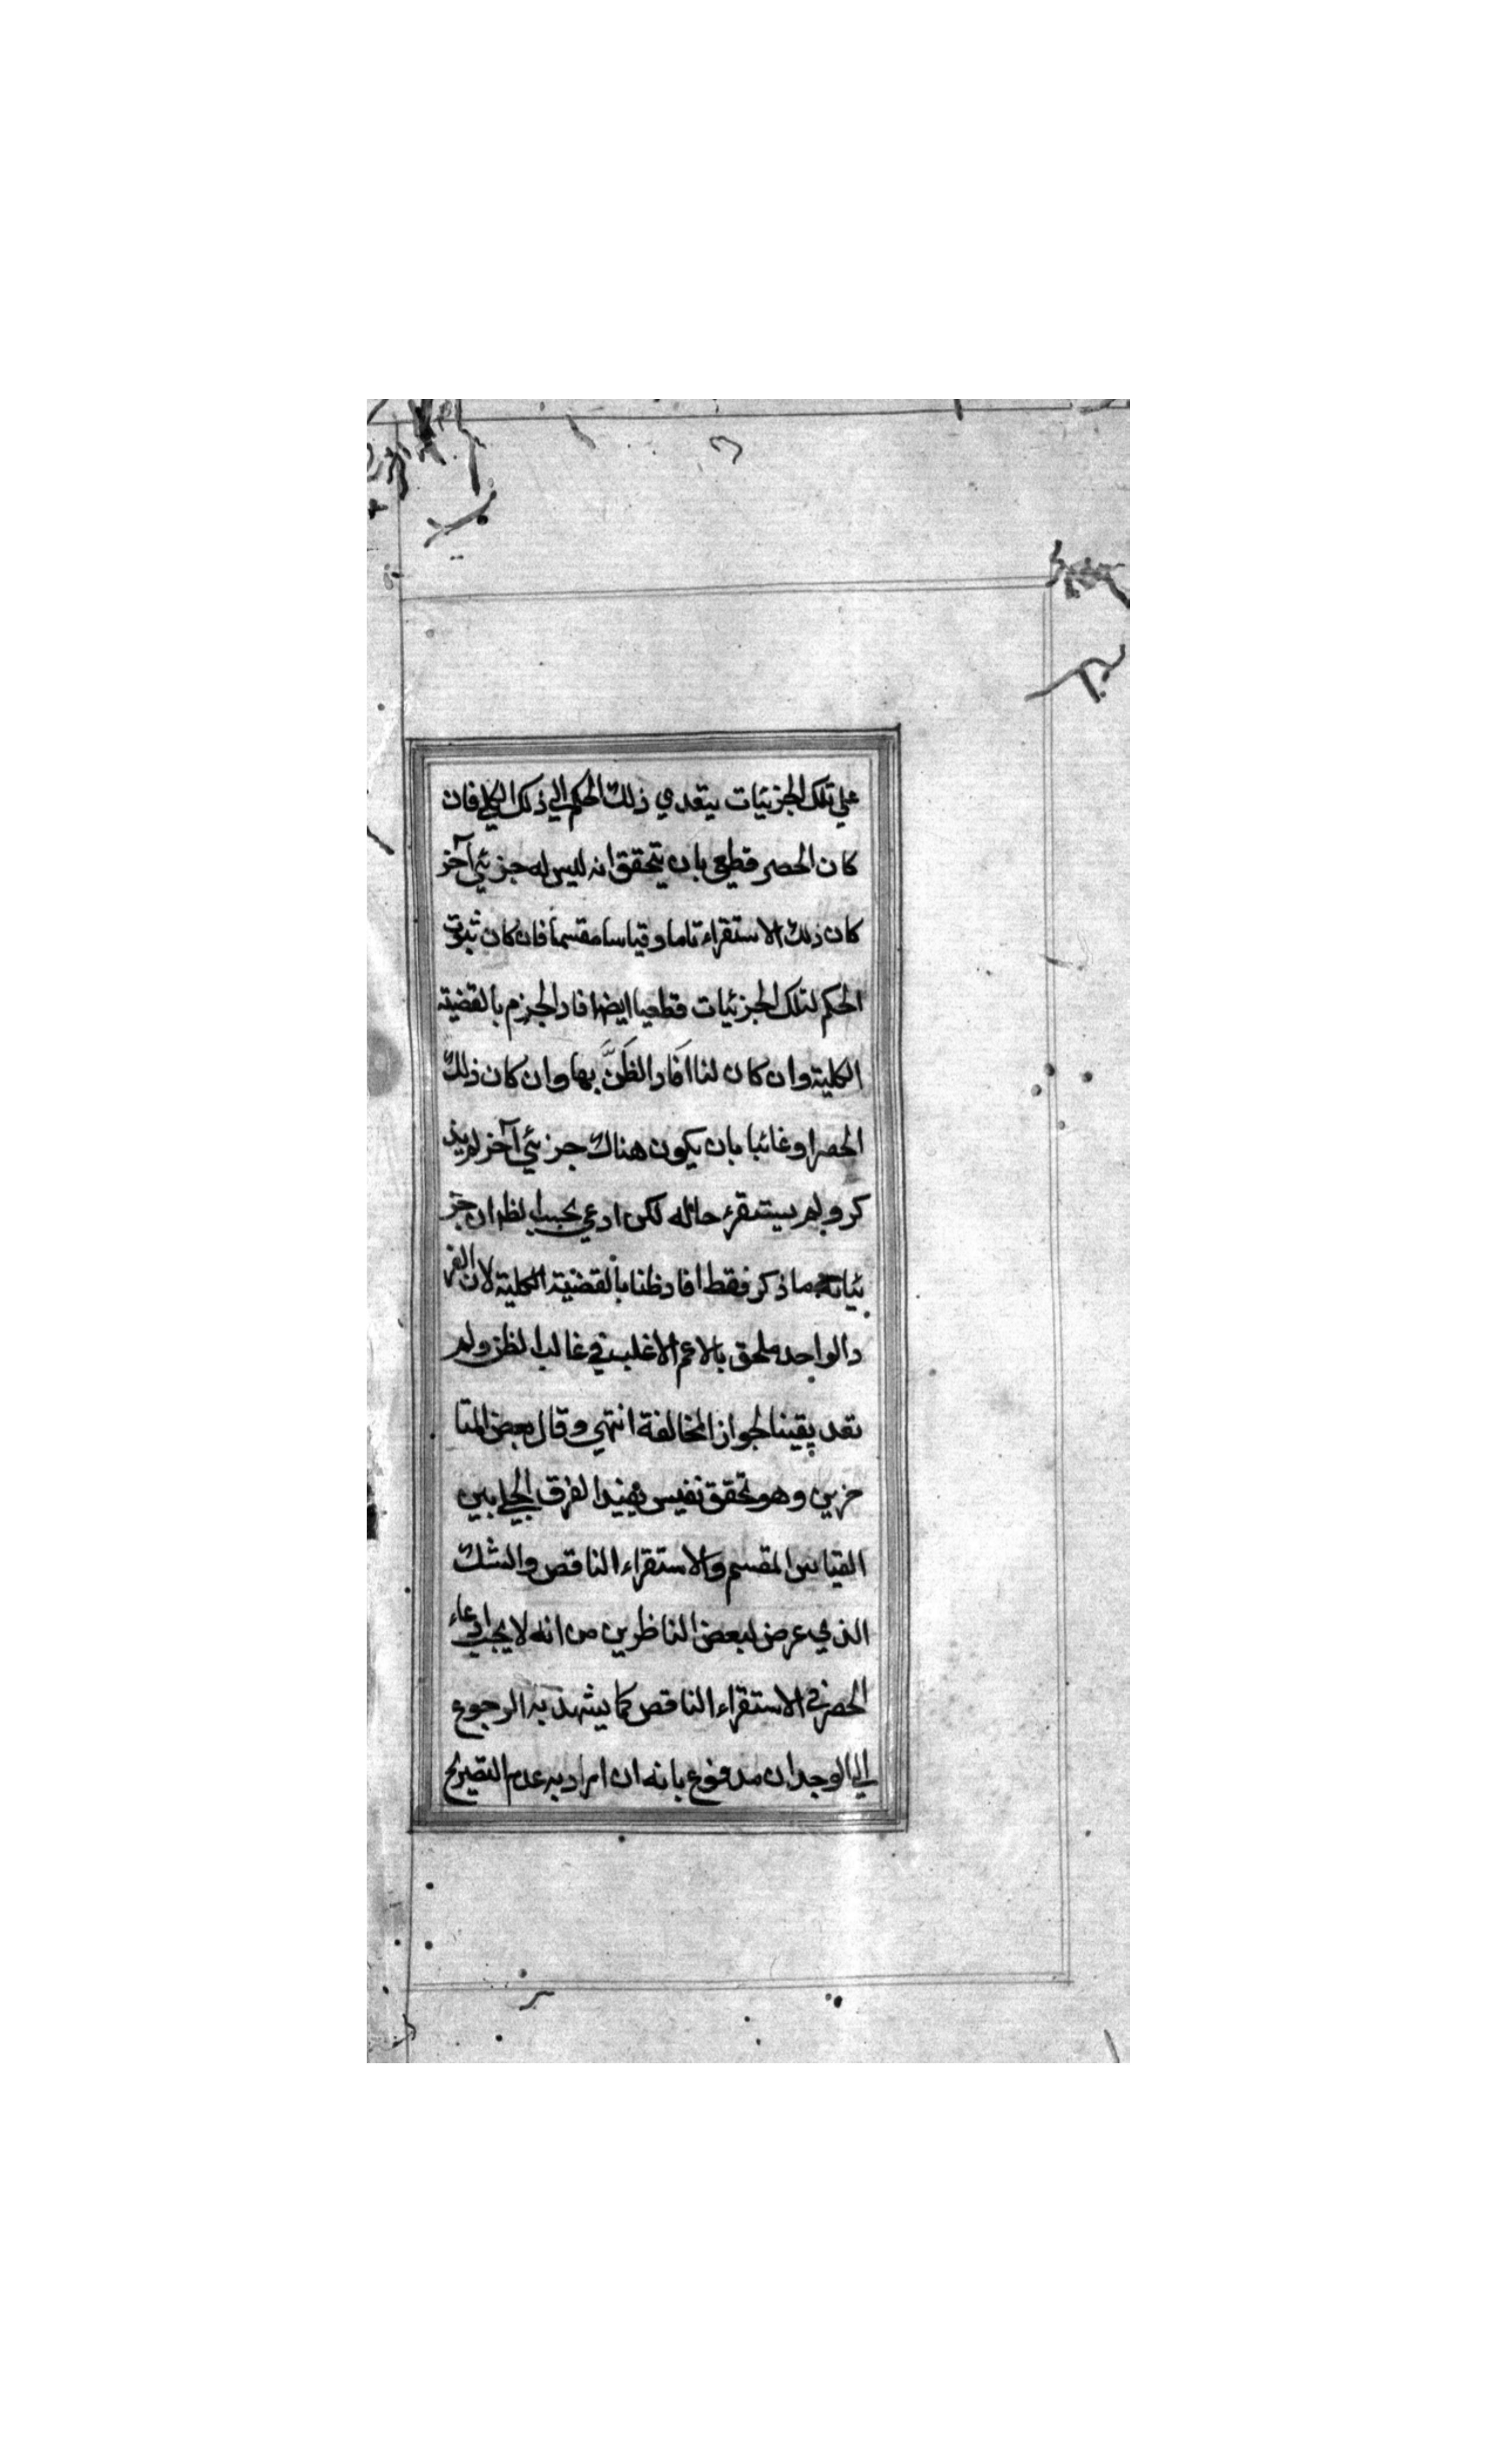 علي تلك الجزئيات يتعدي ذلك الحكم الي ذلك الكلي فان
كان الحصر قطعي بان يتحقق انه ليس له جزئي آخر
كان ذلك الاستقراء تاما وقياسا مقسما فان كان ثبوت
الحكم لتلك الجزئيات قطعيا ايضا افاد الجزم بالقضية
الكلية وان كان لنا افاد الظَنَّ بها وان كان ذلك
الحصر او غائبا بان يكون هناك جزئي آخر لم يذ
كر ولم يستقرء حاله لكن ادعي بحسب الظ ان جز
ئياته ما ذكر فقط افاد ظنا بالقضية الكلية لان الفر
د الواحد ملحق بالاعم الاغلب في غالب الظن ولم
تفد يقينا لجواز المخالفة انتهي وقال بعض المتا
خرين وهو تحقق نفيس يفيد الفرق الجلي بين
القياس المقسم والاستقراء الناقص والشك
الذي عرض لبعض الناظرين من انه لا يجب ادعاء
الحصر في الاستقراء الناقص كما يشهد به الرجوع
الي الوجدان مدفوع بانه ان اراد به عدم التصريح